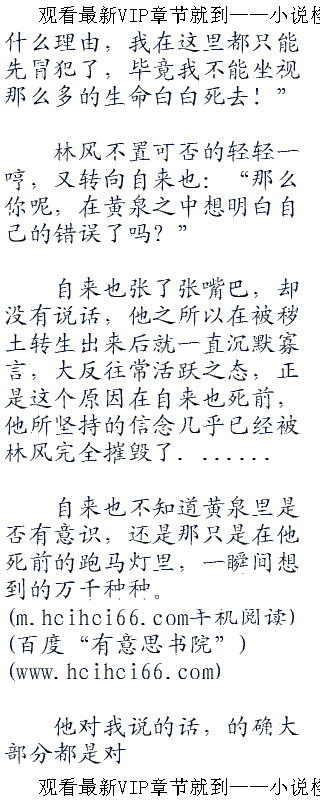 观看最新VIP章节就到——小说检
什么理由，我在这里都只能
先冒犯了，毕竟我不能坐视
那么多的生命白白死去！”
林风不置可否的轻轻一
哼，又转向自来也：“那么
你呢，在黄泉之中想明白自
己的错误了吗？”
自来也张了张嘴巴，却
没有说话，他之所以在被秽
土转生出来后就一直沉默寡
言，大反往常活跃之态，正
是这个原因在自来也死前，
他所坚持的信念几乎已经被
林风完全摧毁了．．．．．．．
自来也不知道黄泉里是
否有意识，还是那只是在他
死前的跑马灯里，一瞬间想
到的万千种种。
(m.hcihci66.com手机阅读)
(百度“有意思书院”)
(www.hcihci66.com)
他对我说的话，的确大
部分都是对
观看最新VIP章节就到——小说检